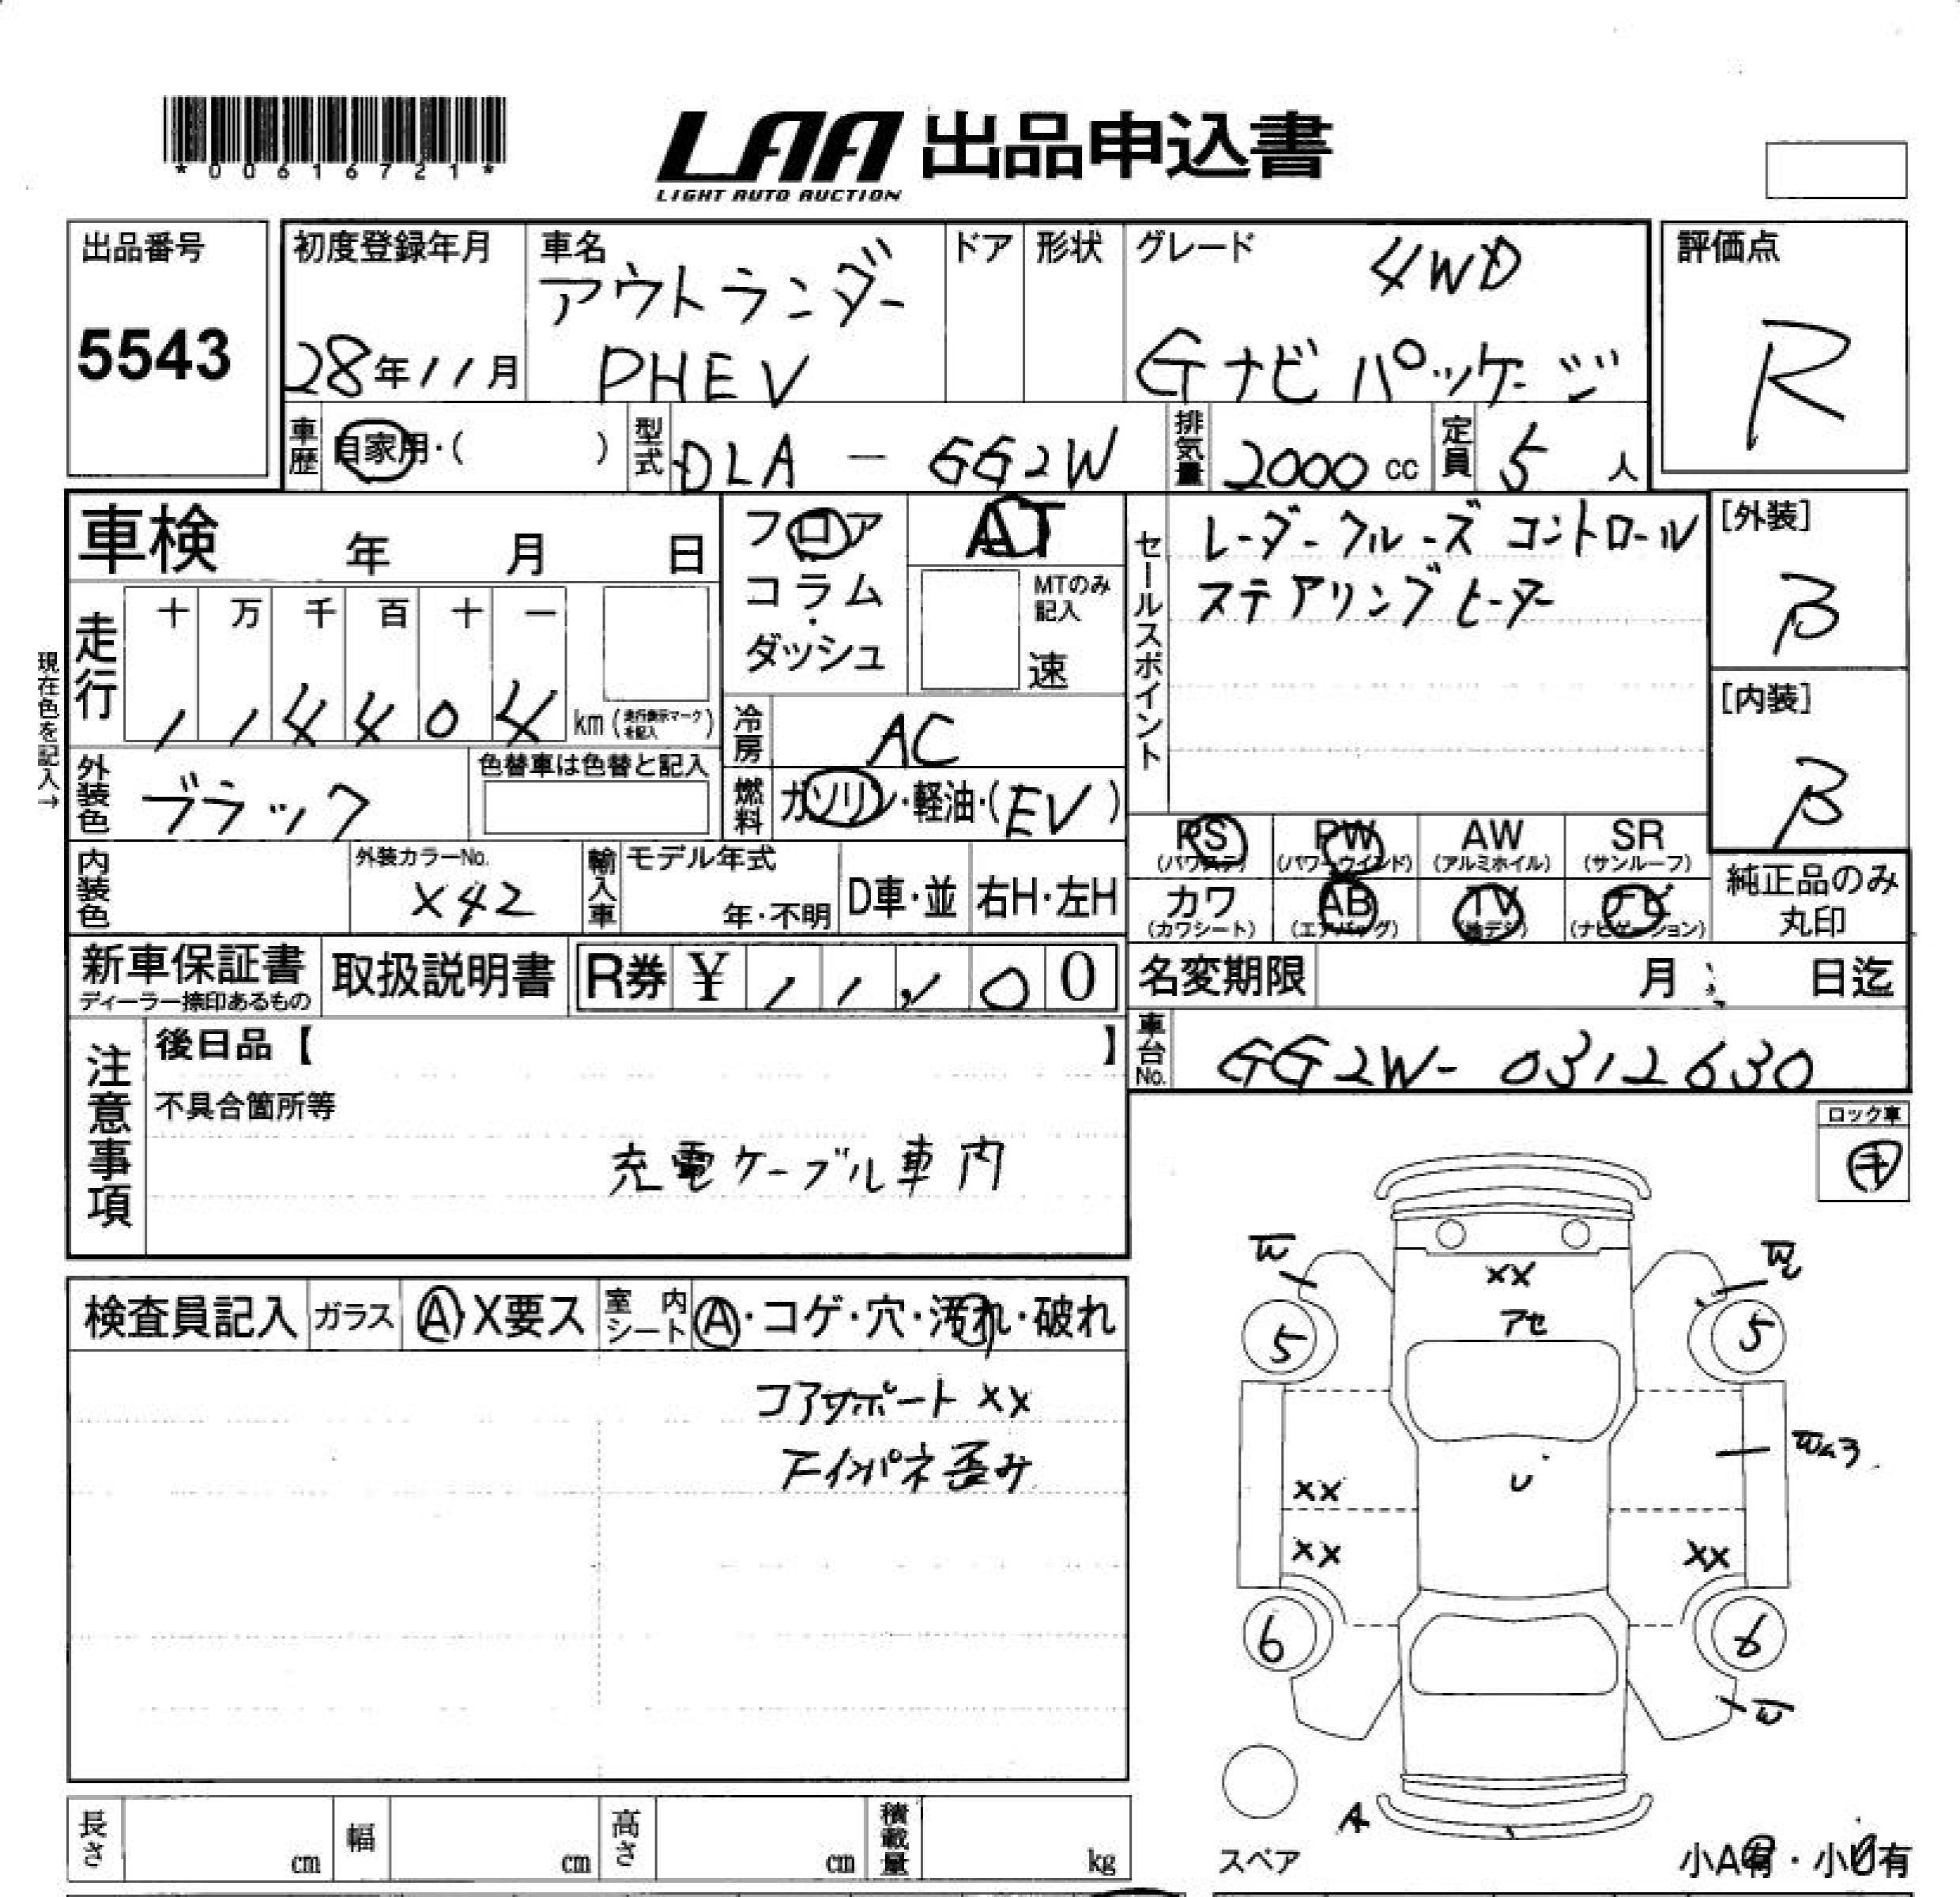 *00616721*
LAA 出品申込書
LIGHT AUTO AUCTION
出品番号
5543
初度登録年月
28年11月
車名
アウトランダー
PHEV
ドア
形状
グレード
4WD
Gナビパッケージ
評価点
R
車歴
自家用・( )
型式
DLA - GG2W
排気量
2000 cc
定員
5 人
車検 年 月 日
フロア
コラム
・
ダッシュ
AT
MTのみ
記入
速
セールスポイント
レーダークルーズコントロール
ステアリングヒーター
[外装]
B
[内装]
B
現在色を記入→
走行
十 万 千 百 十 一
1 1 4 4 0 4
km (走行表示マークを記入)
冷房
AC
外装色
ブラック
色替車は色替と記入
燃料
ガソリン・軽油・(EV)
PS
(パワステ)
PW
(パワーウインド)
AW
(アルミホイル)
SR
(サンルーフ)
カワ
(カワシート)
AB
(エアバッグ)
TV
(地デジ)
ナビ
(ナビゲーション)
純正品のみ
丸印
内装色
外装カラーNo.
X42
輸入車
モデル年式
年・不明
D車・並
右H・左H
新車保証書
ディーラー捺印あるもの
取扱説明書
R券 ¥ 1 1, 1 0 0
名変期限 月 日迄
車台No.
GG2W- 0312630
注意事項
後日品【 】
不具合箇所等
充電ケーブル車内
ロック車
キ
検査員記入
ガラス
A・X要ス
室内シート
A・コゲ・穴・汚れ・破れ
コアサポートXX
インパネ歪み
W
XX
アセ
5
5
XX
U
XX
XX
6
6
W
A
スペア
小A有・小U有
長さ cm
幅 cm
高さ cm
積載量 kg